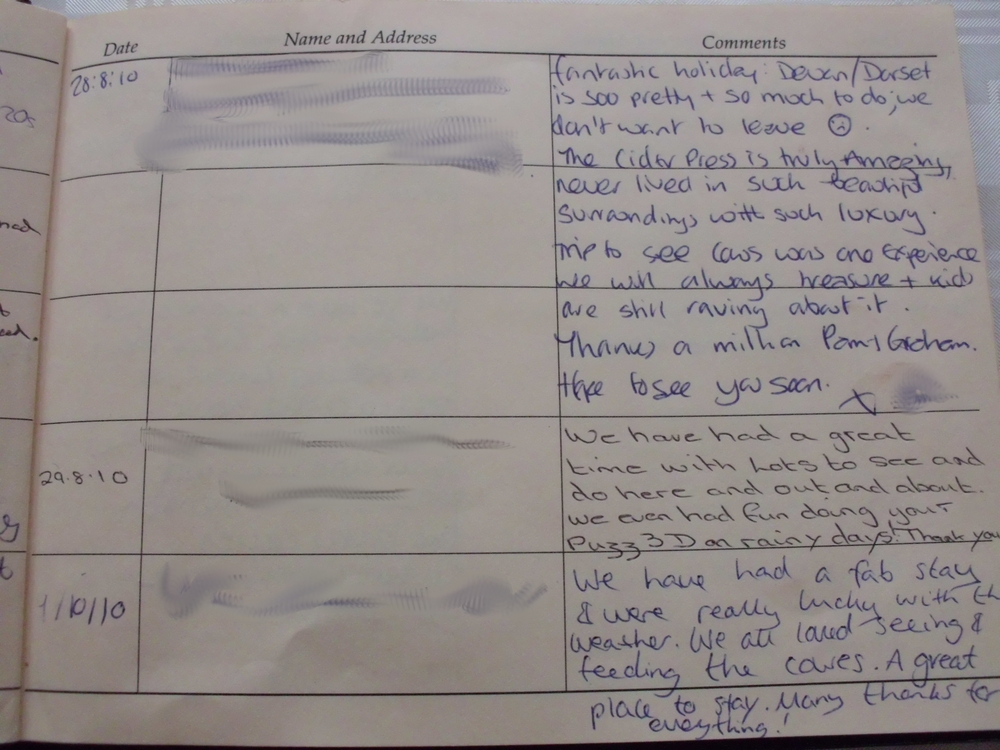 Date Name and Address Comments
28:8:10
fantastic holiday: Devon/Dorset
is soo pretty + so much to do, we
don't want to leave ☹.
The Cider Press is truly Amazing,
never lived in such beautiful
Surroundings with such luxury.
trip to see cows was one experience
we will always treasure + kids
are still raving about it.
Thanks a million Pam + Graham.
Hope to see you soon. X
29.8.10
We have had a great
time with Lots to see and
do here and out and about.
we even had fun doing your
Puzz 3D on rainy days! Thank you
1/10/10
We have had a fab stay
& were really lucky with th
weather. We all loved seeing &
feeding the calves. A great
place to stay. Many thanks for
everything!